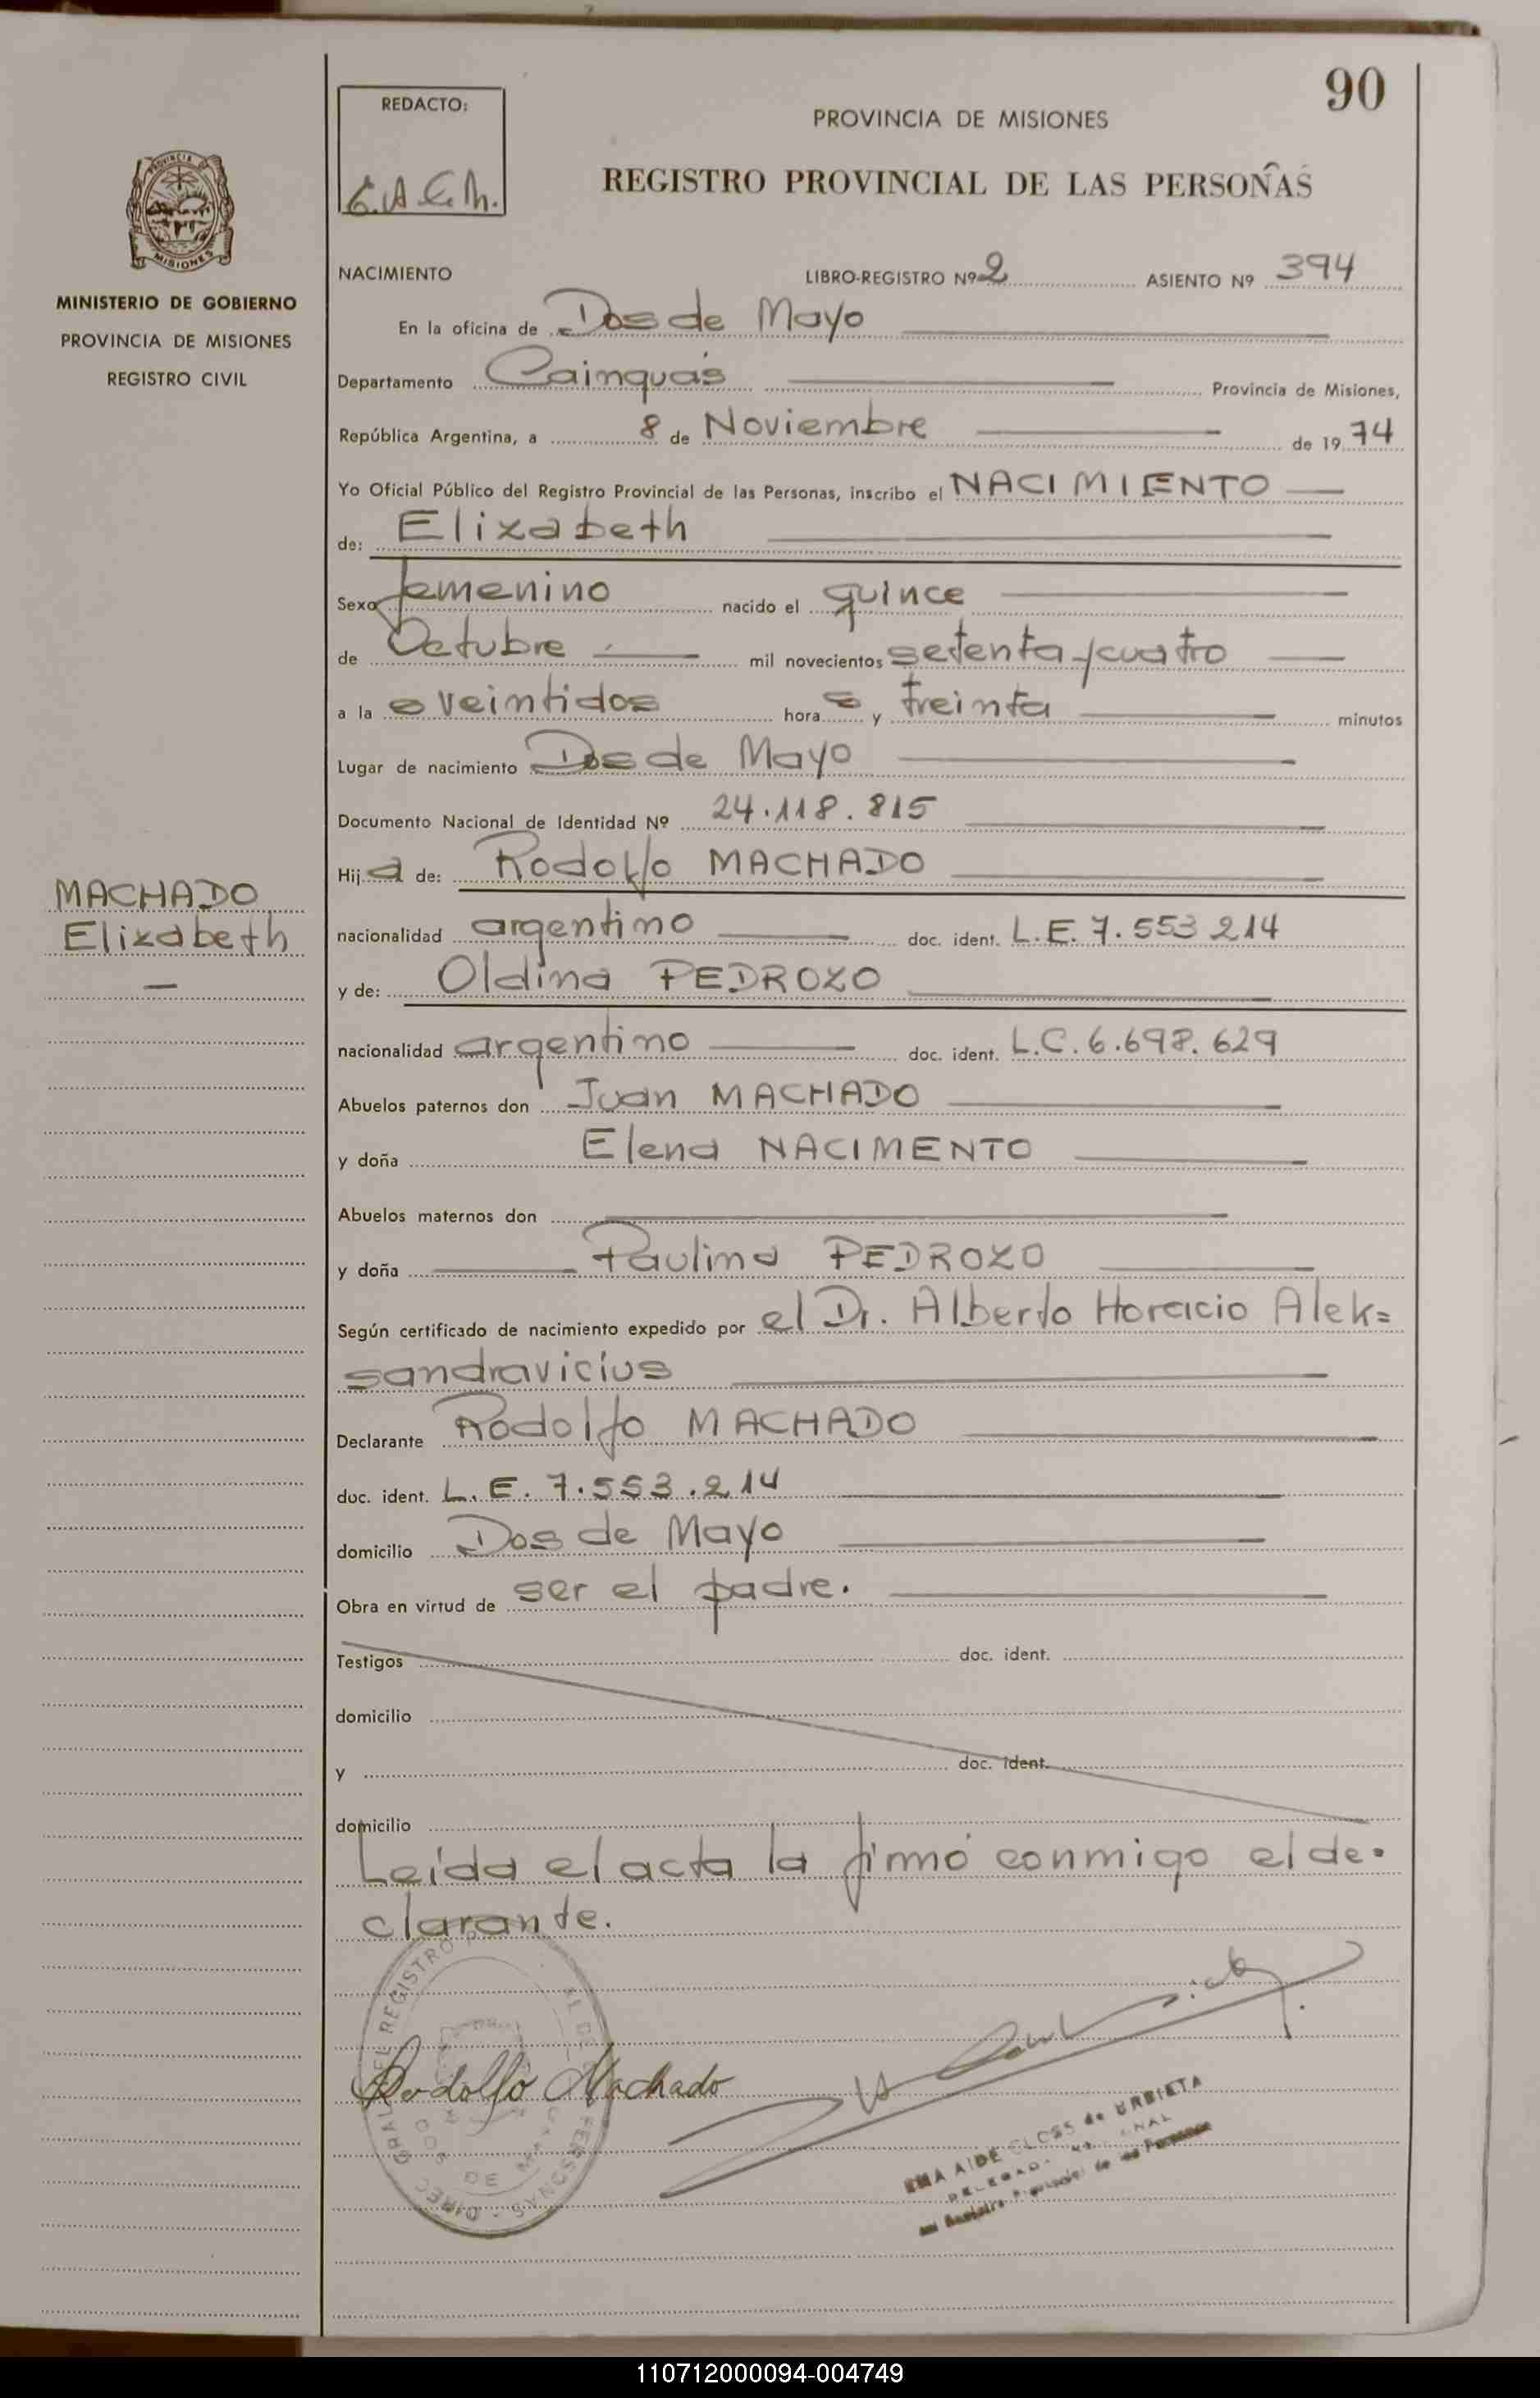 90
REDACTO:
PROVINCIA DE MISIONES
REGISTRO PROVINCIAL DE LAS PERSONAS
PROVINCIA
MISIONES
MINISTERIO DE GOBIERNO
PROVINCIA DE MISIONES
REGISTRO CIVIL
NACIMIENTO LIBRO-REGISTRO Nº 2 ASIENTO Nº 394
En la oficina de Dos de Mayo
Departamento Cainguás Provincia de Misiones,
República Argentina, a 8 de Noviembre de 1974
Yo Oficial Público del Registro Provincial de las Personas, inscribo el NACIMIENTO
de: Elizabeth
Sexo femenino nacido el quince
de Octubre mil novecientos setenta y cuatro
a la s veintidos hora s y treinta minutos
Lugar de nacimiento Dos de Mayo
Documento Nacional de Identidad Nº 24.118.815
Hija de: Rodolfo MACHADO
MACHADO
Elizabeth
nacionalidad argentino doc. ident. L.E. 7.553 214
y de: Oldina PEDROZO
nacionalidad argentino doc. ident. L.C. 6.698.629
Abuelos paternos don Juan MACHADO
y doña Elena NACIMENTO
Abuelos maternos don
y doña Paulina PEDROZO
Según certificado de nacimiento expedido por el Dr. Alberto Horacio Alek=
sandravicius
Declarante Rodolfo MACHADO
doc. ident. L.E. 7.553.214
domicilio Dos de Mayo
Obra en virtud de ser el padre.
Testigos doc. ident.
domicilio
y doc. ident.
domicilio
Leída el acta la firmó conmigo el de-
clarante.
Rodolfo Machado
EMA AIDE CLOSS de URBIETA
110712000094-004749